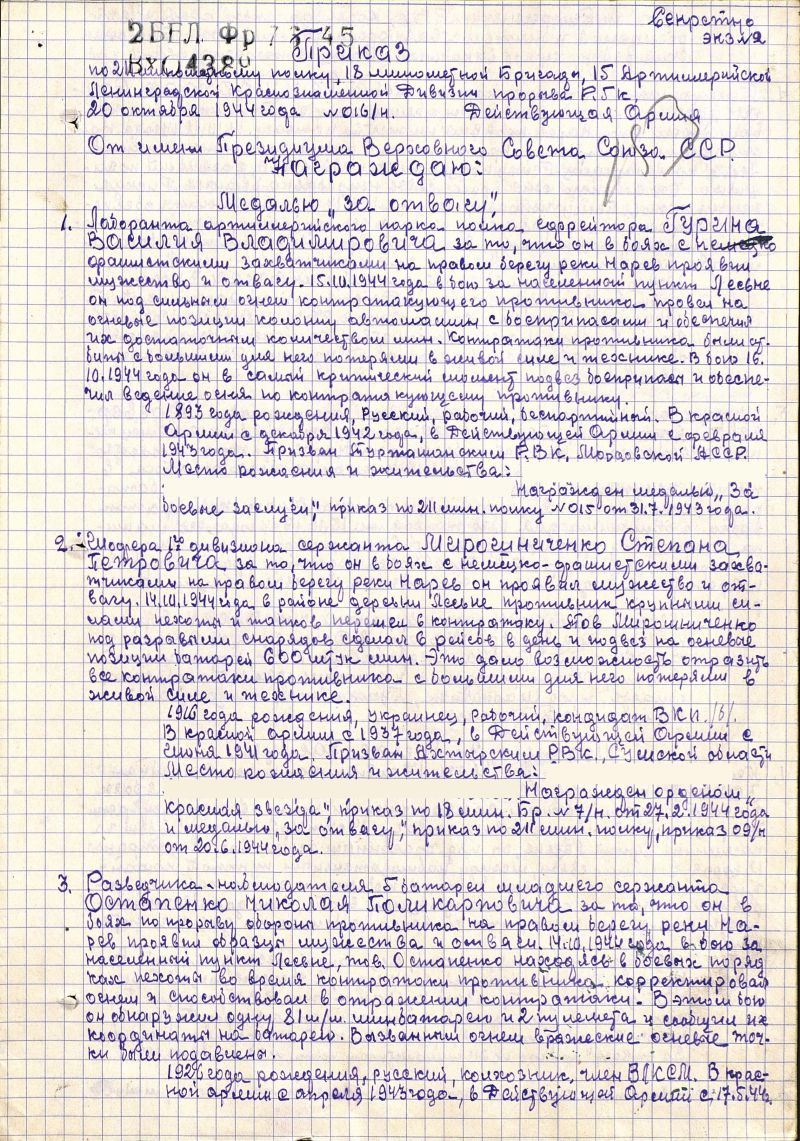 Секретно
экз №2
2 БЕЛ. Фр 45
Вх
Приказ
по 211 минометному полку, 18 минометной Бригады, 15 Артиллерийской
Ленинградской Краснознаменной Дивизии прорыва Р.Г.К.
20 октября 1944 года №016/н. Действующая Армия
От имени Президиума Верховного Совета Союза ССР.
награждаю:
Медалью „За отвагу”
1. Лаборанта артиллерийского парка полка ефрейтора Гурина
Василия Владимировича за то, что он в боях с немецко
фашистскими захватчиками на правом берегу реки Нарев проявил
мужество и отвагу. 15.10.1944 года в бою за населенный пункт Лесьне
он под сильным огнем контратакующего противника провел на
огневые позиции колонну автомашин с боеприпасами и обеспечил
их достаточным количеством мин. Контратаки противника были от-
биты с большими для него потерями в живой силе и технике. В бою 16.
10.1944 года он в самый критический момент подвез боеприпасы и обеспе-
чил ведение огня по контратакующему противнику.
1893 года рождения, Русский, рабочий, беспартийный. В красной
Армии с декабря 1942 года, в Действующей Армии с февраля
1943 года. Призван Р.В.К. Мордовской АССР.
Место рождения и жительства:
Награжден медалью „За
боевые заслуги”, приказ по 211 мин. полку №015 от 31.7.1943 года.
2. Шофера 1го дивизиона сержанта Мирошниченко Степана
Петровича за то, что он в боях с немецко-фашистскими захва-
тчиками на правом берегу реки Нарев он проявил мужество и от-
вагу. 14.10.1944 года в районе деревни Лесьне противник крупными си-
лами пехоты и танков перешел в контратаку. Тов Мирошниченко
под разрывами снарядов сделал 8 рейсов в день и подвез на огневые
позиции батарей 600 штук мин. Это дало возможность отразить
все контратаки противника с большими для него потерями в
живой силе и технике.
1916 года рождения, украинец, рабочий, кандидат ВКП /б/.
В красной армии с 1937 года, в Действующей Армии с
июня 1941 года. Призван Ахтырским Р.В.К., Сумской области
Место рождения и жительства:
Награжден орденом „
красная звезда”, приказ по 18 мин. Бр. №7/н. от 27.2.1944 года
и медалью „За отвагу”, приказ по 211 мин. полку, приказ 09/н
от 20.6.1944 года.
3. Разведчика-наблюдателя 5 батареи младшего сержанта
Остапенко Николая Поликарповича за то, что он в
боях по прорыву обороны противника на правом берегу реки На-
рев проявил образцы мужества и отваги. 14.10.1944 года в бою за
населенный пункт Лесьне, тов. Остапенко находясь в боевых поряд
ках пехоты во время контратаки противника корректировал
огнем и способствовал в отражении контратаки. В этом бою
он обнаружил одну 81 м/м. минбатарею и 2 пулемета и сообщил их
координаты на батарею. Вызванным огнем вражеские огневые точ-
ки были подавлены.
года рождения, русский, колхозник, член ВЛКСМ. В крас-
ной армии с апреля 1943 года, в Действующей Армии с 17.5.44г.